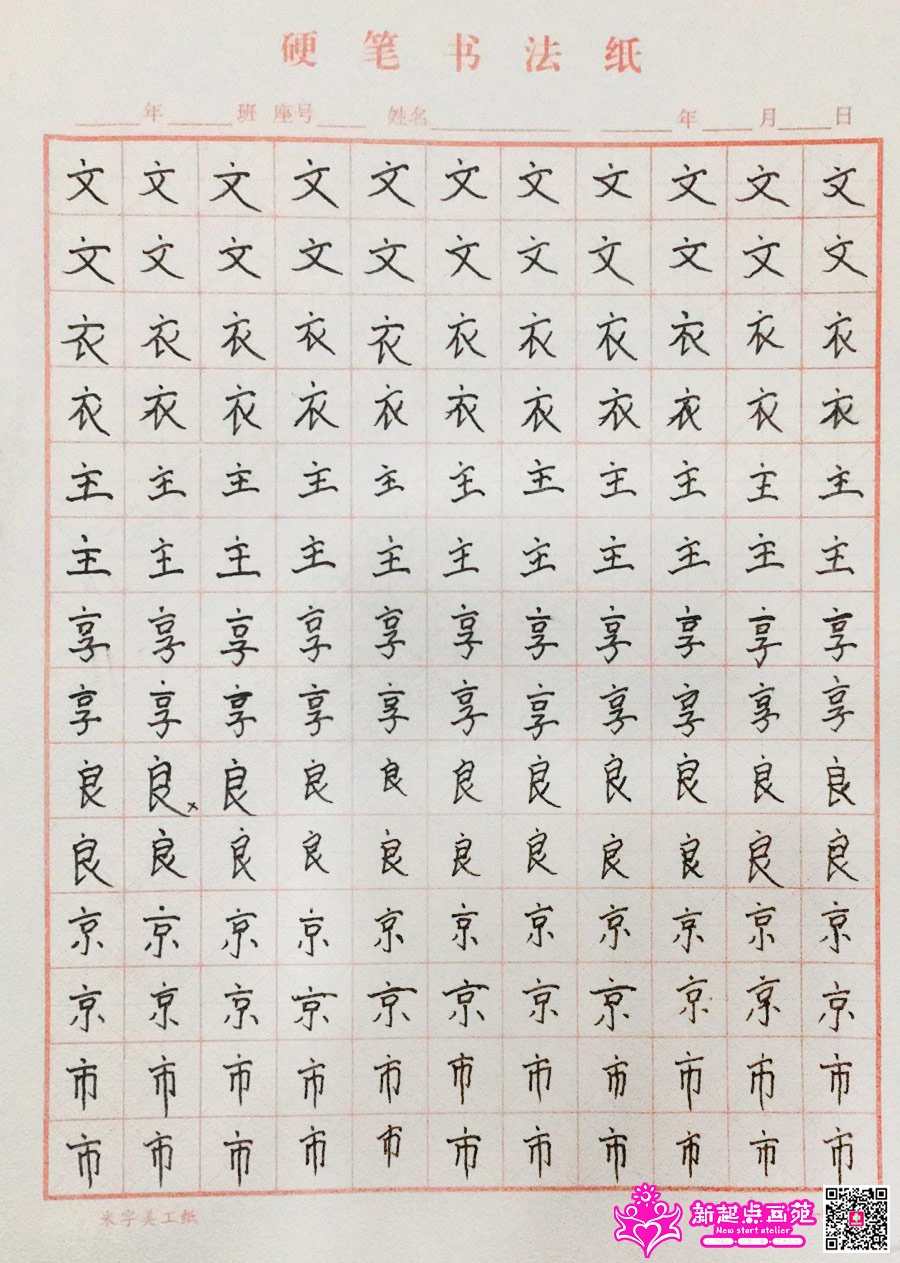 硬笔书法纸
年 班 座号 姓名 年 月 日
文文文文文文文文文文文
文文文文文文文文文文文
衣衣衣衣衣衣衣衣衣衣衣
衣衣衣衣衣衣衣衣衣衣衣
主主主主主主主主主主主
主主主主主主主主主主主
享享享享享享享享享享享
享享享享享享享享享享享
良良良良良良良良良良良
良良良良良良良良良良良
京京京京京京京京京京京
京京京京京京京京京京京
市市市市市市市市市市市
市市市市市市市市市市市
米字美工纸
新起点画苑
New start atelier